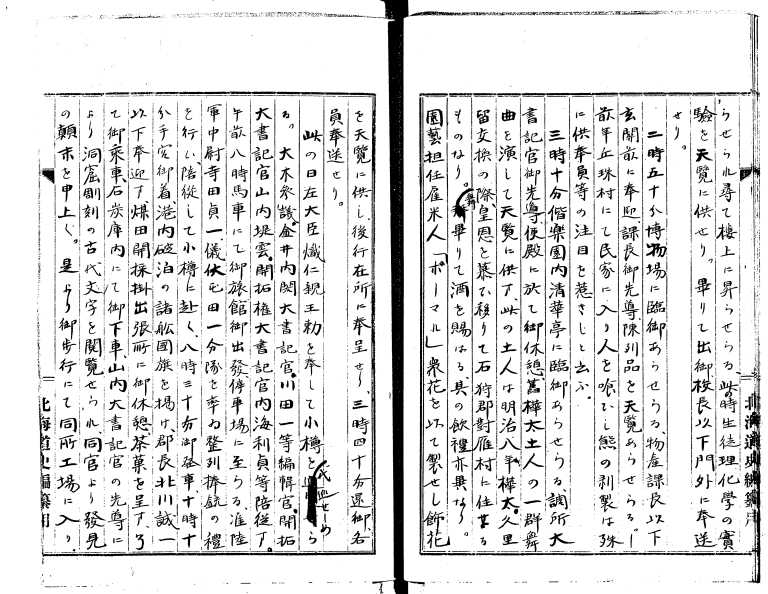 らせられ尋て樓上に昇らせらる此時生徒理化學の實
驗を天覧に供せり。畢りて出御校長以下門外に奉送
せり。
二時五十分博物場に臨御あらせらる、物産課長以下
玄関前に奉迎課長御先導陳列品を天覧あらせらる
前年丘珠村にて民家に入り人を喰ひし熊の剥製は殊
に供奉員等の注目を惹きしと云ふ。
三時十分偕樂園内清華亭に臨御あらせらる調所大
書記官御先導便殿に於て御休憩舊樺太土人の一群舞
曲を演して天覧に供す、此の土人は明治八年樺太久里
留交換の際、皇恩を慕ひ移りて石狩郡對雁村に住せる
ものなり。舞畢りて酒を賜はる其の飲禮亦異なり。
園藝担任雇米人「ボーマル」衆花を以て製せし飾花
を天覧に供し後行在所に奉呈せり、三時四十分還御各
員奉送せり。
此の日左大臣熾仁親王勅を奉して小樽を
る。大木参議、金井内閣大書記官、川田一等編輯官、開拓
大書記官山内堤雲、開拓權大書記官内海利貞等陪従す。
午前八時馬車にて御旅館御出發停車場に至らる准陸
軍中尉寺田貞一儀伏屯田一分隊を率ゐ整列捧銃の禮
を行い陪従して小樽に赴く八時三十分御發車十時十
分手宮御着港内碇泊の諸舩国旗を掲げ、郡長北川誠一
以下奉迎す煤田開採掛出張所に御休憩茶菓を呈す、了
て御乗車石炭庫内にて御下車山内大書記官の先導に
より洞窟彫刻の古代文字を閲覧せられ同官より發見
の顛末を申上ぐ。是より御歩行にて同所工場に入り、
北海道史編纂用